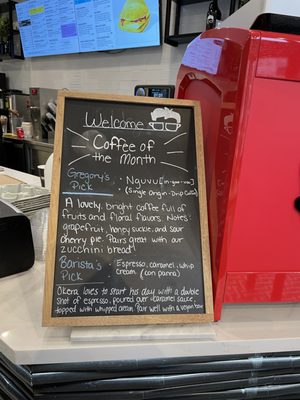 Welcome
Coffee of
the Month
Gregory's
Pick
• Nguvu [in-goo-voo]
(Single Origin - Drip Coffee)
A lovely, bright coffee full of
fruits and floral flavors. Notes:
grapefruit, honey suckle, and sour
cherry pie. Pairs great with our
zucchini bread!
Barista's
Pick
• Espresso, caramel, whip
cream. (con panna)
Okera loves to start his day with a double
shot of espresso, poured over caramel sauce,
topped with whipped cream. Pair well with a vegan bar